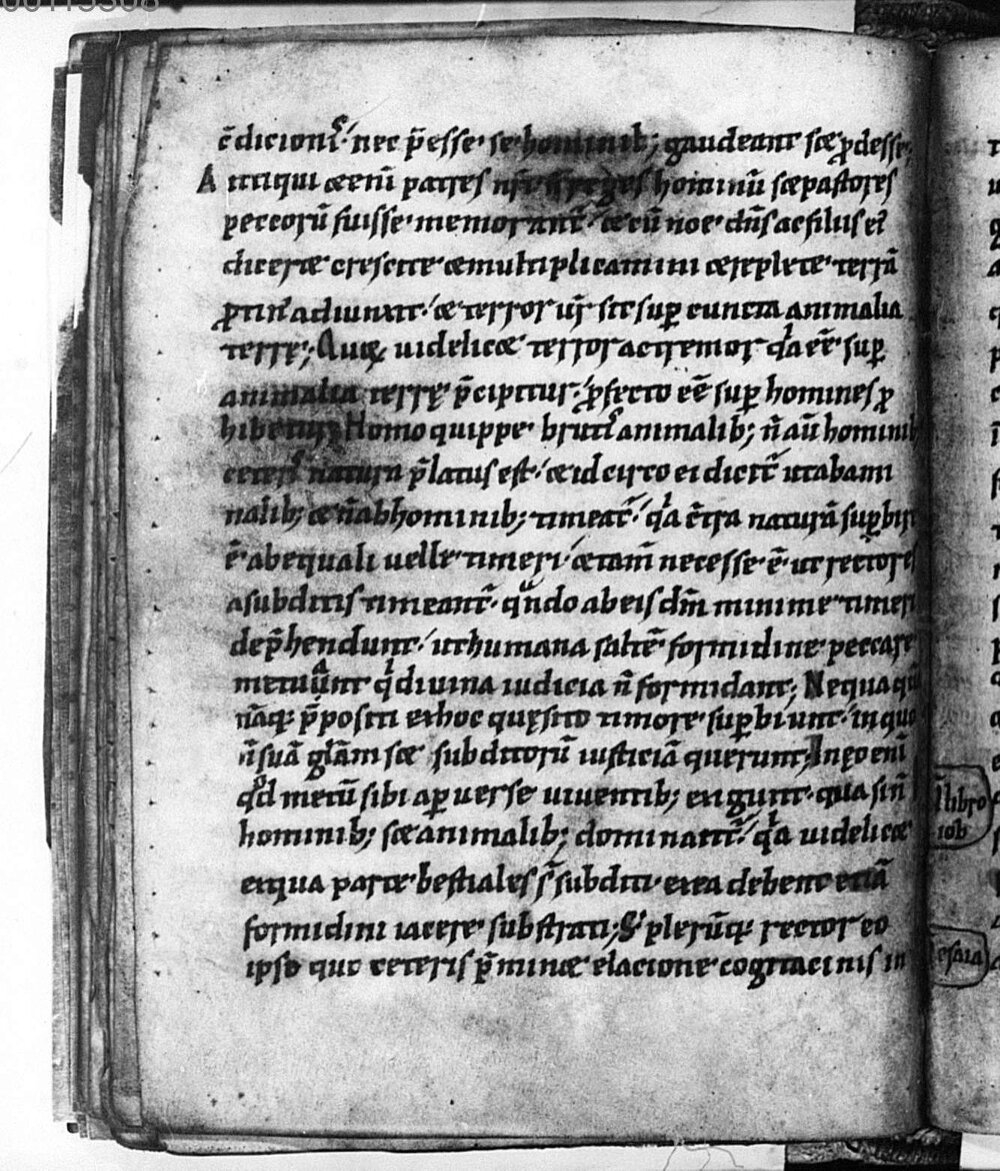 c̄dicioni᷒ nec p̄esse se hominib; gaudeant sꝫ ꝓdesse
Antiqui etenī patres nr̄i reges hominū sꝫ pastores
peccorū fuisse memorant᷑. ⁊ cū noe dn̄s ac filiis ei᷒
diceret crescite ⁊ multiplicamini ⁊ replete terrā
ꝓtin᷒ adiunxit. ⁊ terror ur̄ sit suꝑ cuncta animalia
terrę; Quiꝫ uidelicet terror ac tremor qͥa eē suꝑ
animalia terrę p̄cipitur. ꝓfecto eē suꝑ homines ꝓ
hibetur; Homo quippe brutis animalib; n̄ aū hominib
ceteris natura p̄latus est. ⁊ idcirco ei dicit᷑ ut ab ani
nalib; ⁊ n̄ ab hominib; timeat᷑. qͥa c̄tra naturā suꝑbire
ē ab equali uelle timeri. ⁊ tam̄ necesse ē. ut rectores
a subditis timeant᷑. qͣndo ab eis dm̄ minime timeri
dep̄hendunt. ut humana saltē formidine peccare
metuant qͥ diuina iudicia n̄ formidant; Nequaquā
nāqꝫ p̄positi ex hoc quęsito timore suꝑbiunt. in quo
n̄ suā glām sꝫ subditorū iusticiā querunt; In eo enī
qͦd metū sibi a ꝑuerse uiuentib; exigunt. quasi n̄
hominib; sꝫ animalib; dominant᷑. qͥa uidelicet
ex qua parte bestiales s̄ subditi. ex ea debent etiā
formidini iacere substrati; S; plerūqꝫ rector eo
ipso quo ceteris p̄minet elacione cogitacinis in
līibro
iob
esaia